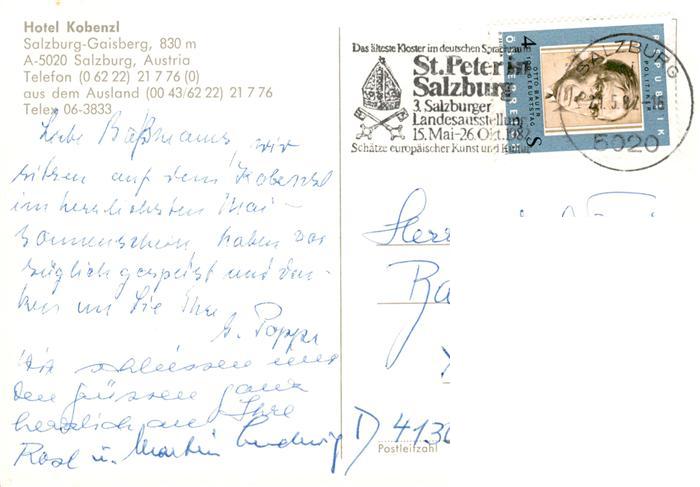 Hotel Kobenzl
Salzburg-Gaisberg, 830 m
A-5020 Salzburg, Austria
Telefon (0 62 22) 21 7 76 (0)
aus dem Ausland (00 43/62 22) 21 7 76
Telex 06-3833
Liebe Baßmanns, wir
sitzen auf dem Kobenzl
im herrlichsten Mai-
Sonnenschein, haben vor
züglich gespeist und den-
ken an Sie Ihre
G. Poppe
Wir schliessen uns
den Grüssen ganz
herzlich an Ihre
Rosl u. Martin Ludwig
Das älteste Kloster im deutschen Sprachraum
St. Peter in
Salzburg
3. Salzburger
Landesausstellung
15. Mai-26. Okt. 1982
Schätze europäischer Kunst und Kultur
REPUBLIK
ÖSTERREICH
OTTO BAUER
100. GEBURTSTAG
POLITIKER
S 4
SALZBURG
5020
Herr
Ba
D 413
Postleitzahl